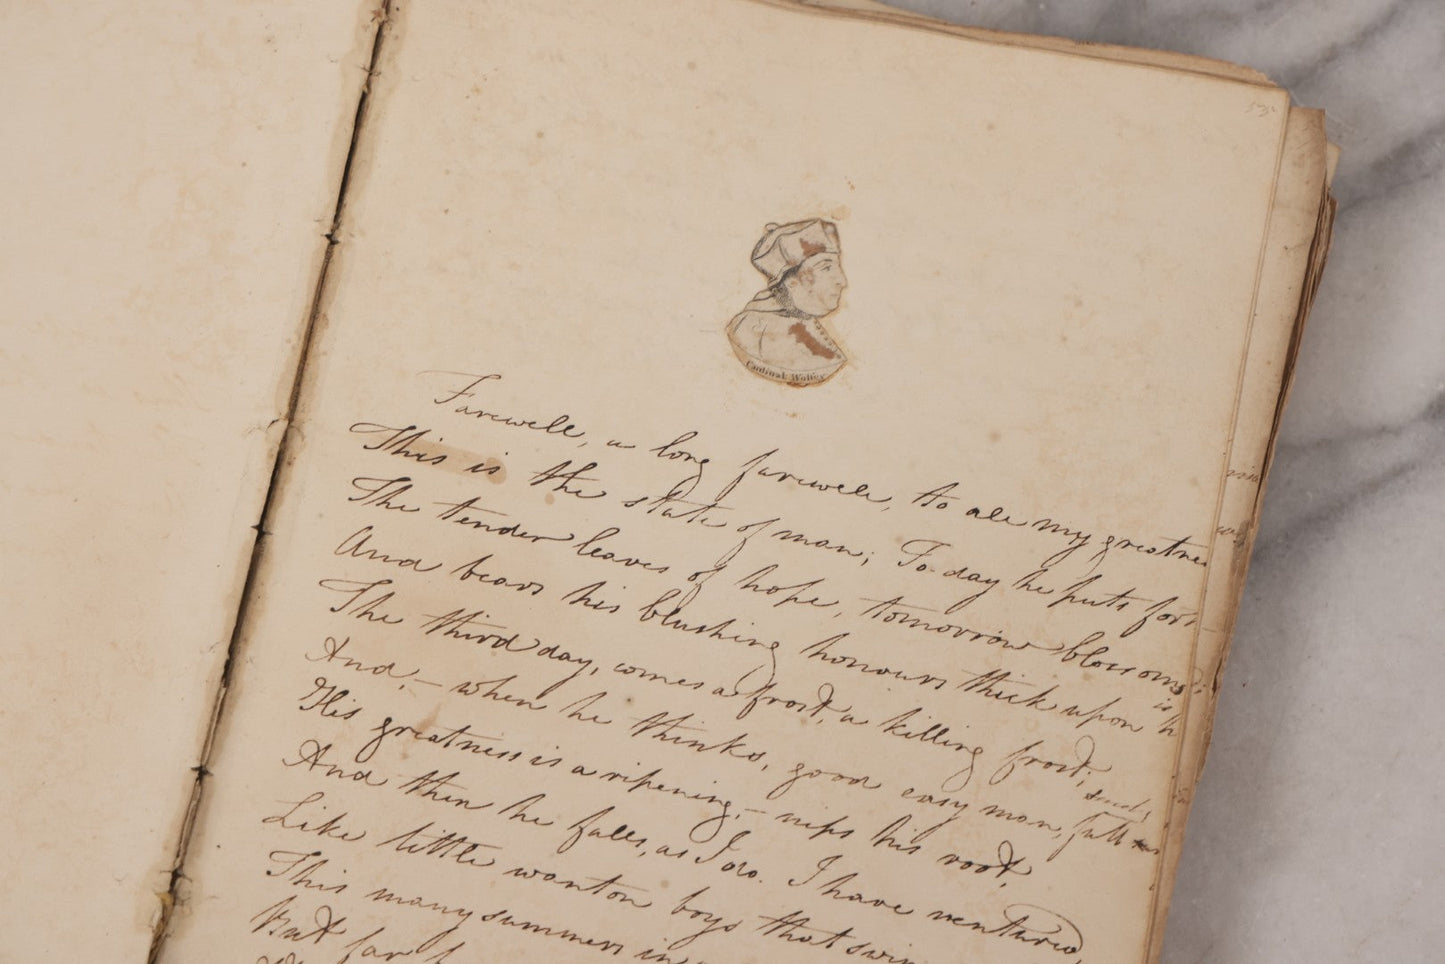 53
Cardinal Wolsey
Farewell, a long farewell, to all my greatnes
This is the state of man; To-day he puts forth
The tender leaves of hope, tomorrow blossoms
And bears his blushing honours thick upon h
The third day, comes a frost, a killing frost;
And, – when he thinks, good easy man, full
His greatness is a ripening, – nips his root,
And then he falls, as I do. I have ventured,
Like little wanton boys that swim
This many summers in
But far b